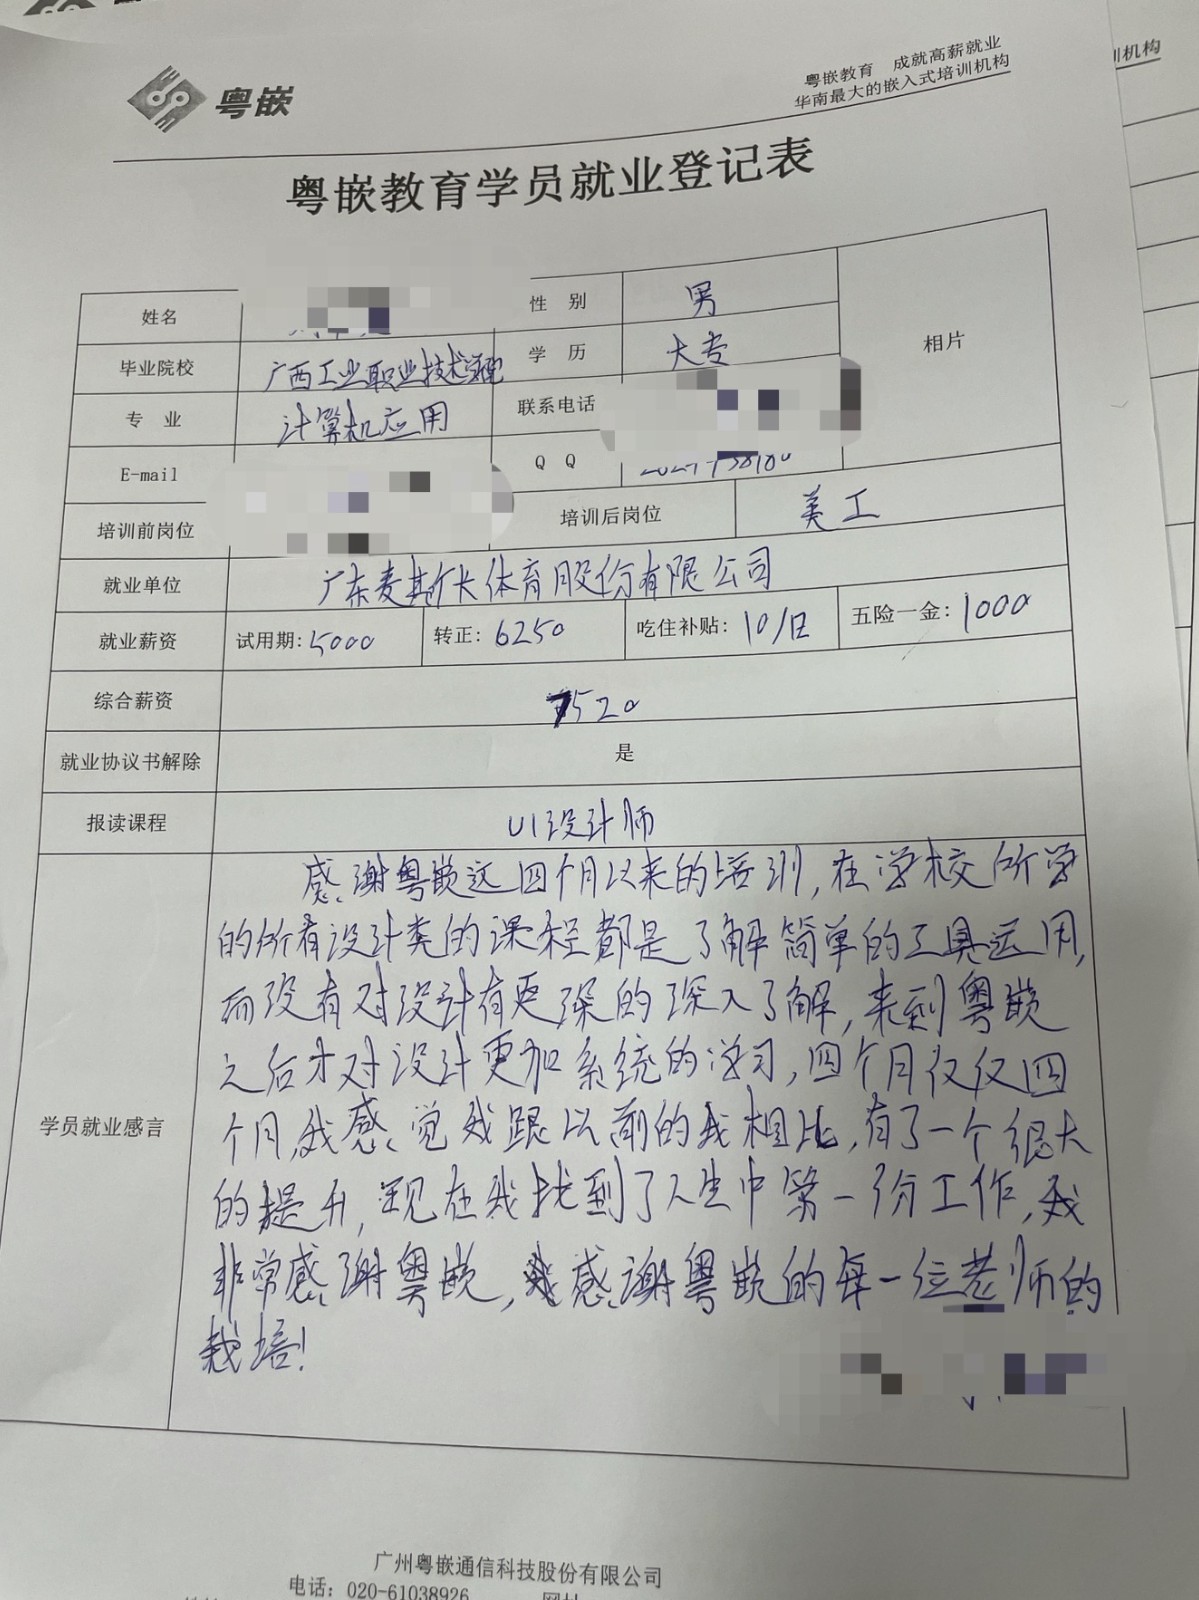 粤嵌
粤嵌教育 成就高薪就业
华南最大的嵌入式培训机构
训机构
粤嵌教育学员就业登记表
姓名
性 别 男
相片
毕业院校 广西工业职业技术学院
学 历 大专
专 业 计算机应用
联系电话
E-mail
Q Q
培训前岗位
培训后岗位 美工
就业单位 广东麦斯卡体育股份有限公司
就业薪资 试用期:5000 转正:6250 吃住补贴:10/日 五险一金:1000
综合薪资 7520
就业协议书解除 是
报读课程 UI设计师
学员就业感言
感谢粤嵌这四个月以来的培训,在学校所学
的所有设计类的课程都是了解简单的工具运用,
而没有对设计有更深的深入了解,来到粤嵌
之后才对设计更加系统的学习,四个月仅仅四
个月,我感觉我跟以前的我相比,有了一个很大
的提升,现在我找到了人生中第一份工作,我
非常感谢粤嵌,我感谢粤嵌的每一位老师的
栽培!
广州粤嵌通信科技股份有限公司
电话:020-61038926